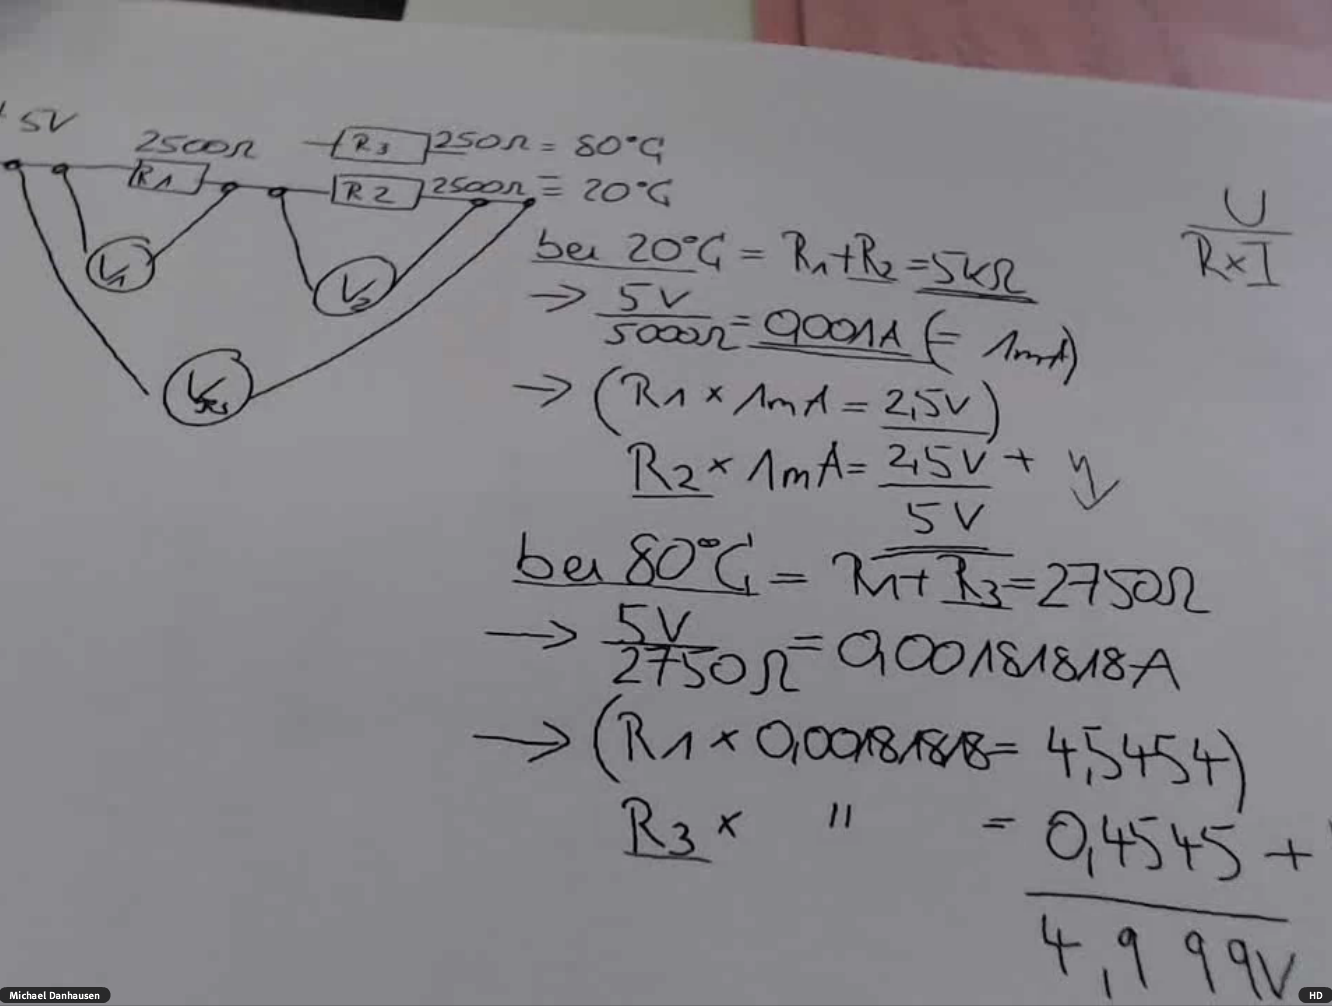 + 5V
2500Ω
R3 250Ω = 80°C
R1
R2 2500Ω = 20°C
V1
V2
U
R×I
bei 20°C = R1+R2 = 5kΩ
→ 5V
5000Ω = 0,001A (= 1mA)
→ (R1 × 1mA = 2,5V)
R2 × 1mA = 2,5V +
5V
bei 80°C = R1+R3 = 2750Ω
→ 5V
2750Ω = 0,00181818A
→ (R1 × 0,00181818 = 4,5454)
R3 × " = 0,4545 +
4,999V
Michael Danhausen
HD